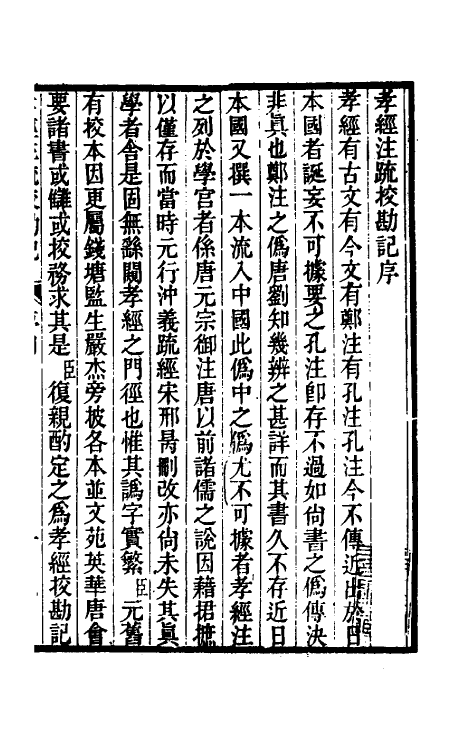 孝經注疏挍勘記序
孝經有古文有今文有鄭注有孔注孔注今不傳近出於日
本國者誕妄不可據要之孔注卽存不過如尙書之僞傳決
非真也鄭注之僞唐劉知幾辨之甚詳而其書久不存近日
本國又撰一本流入中國此僞中之僞尤不可據者孝經注
之列於學官者係唐元宗御注唐以前諸儒之說因藉捃摭
以僅存而當時元行沖義疏經宋邢昺刪改亦尙未失其眞
學者舍是固無繇闚孝經之門徑也惟其譌字實繁臣元舊
有挍本因更屬錢塘監生嚴杰旁披各本並文苑英華唐會
要諸書或讎或挍務求其是臣復親酌定之爲孝經挍勘記